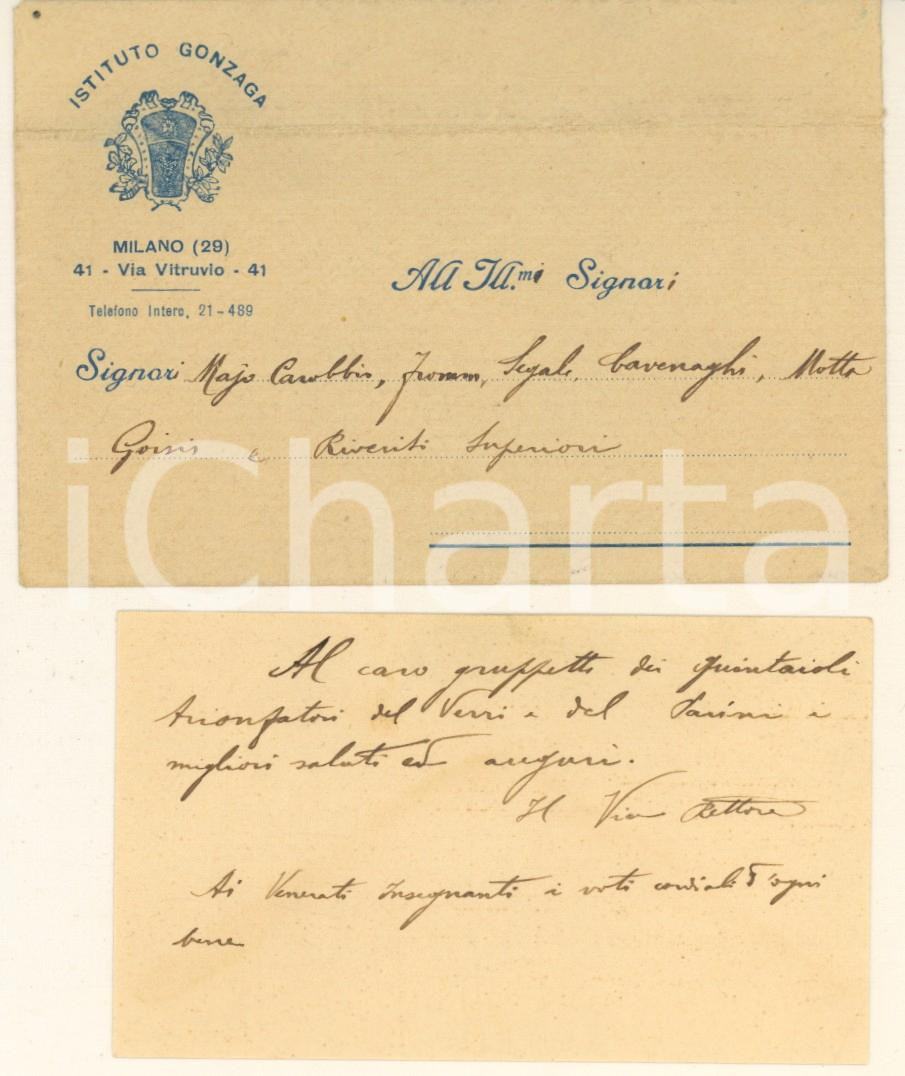 ISTITUTO GONZAGA
MILANO (29)
41 - Via Vitruvio - 41
Telefono Interc. 21-489
All Ill.mi Signori
Signori Majo Carobbio, Fromm, Segale, Cavenaghi, Motta
Goisis e Riveriti Superiori
iCharta
Al caro gruppetto dei quintaioli
trionfatori del Verri e del Parini i
migliori saluti ed auguri.
Il Vice Rettore
Ai Venerati Insegnanti i voti cordiali d'ogni
bene